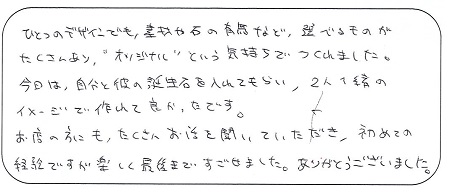 ひとつのデザインでも、素材や石の有無など、選べるものが
たくさんあり、"オリジナル"という気持ちでつくれました。
今日は、自分と彼の誕生石を入れてもらい、2人1緒の
イメージで作れて良かったです。
お店の方にも、たくさんお話を聞いていただき、初めての
経験ですが楽しく最後まですごせました。ありがとうございました。